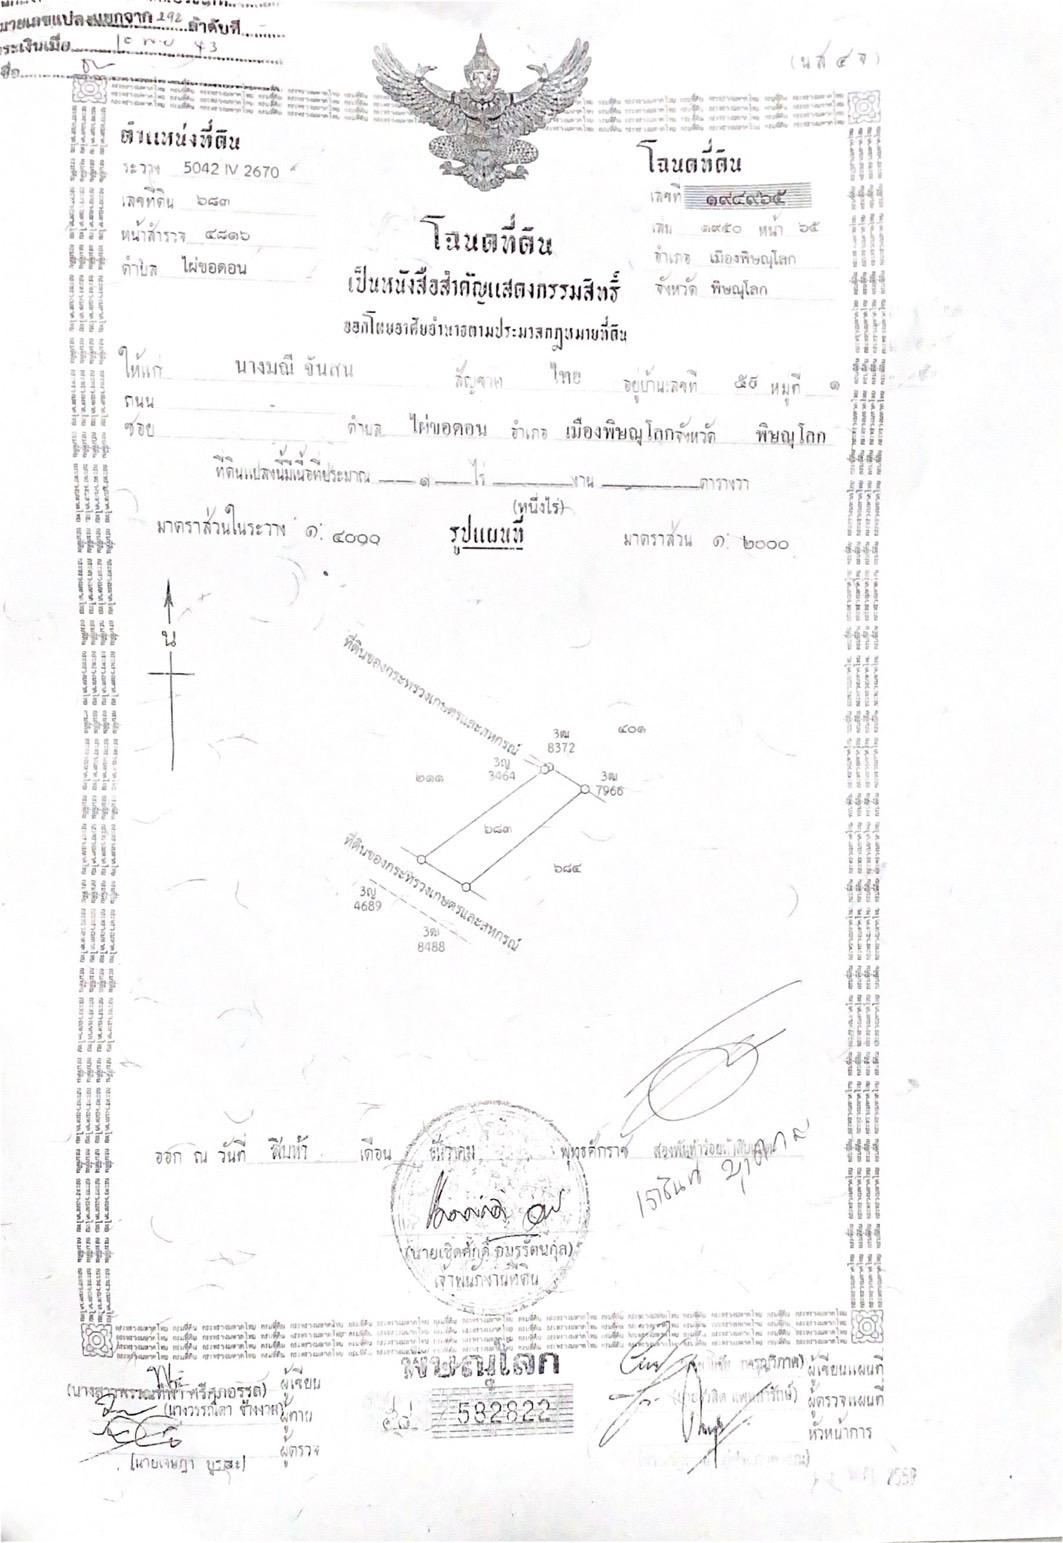 หมายเลขแปลงแยกจาก 292 ลำดับที่
(น ส ๔ จ)
ตำแหน่งที่ดิน
ระวาง 5042 IV 2670
เลขที่ดิน ๖๘๓
หน้าสำรวจ ๔๘๑๖
ตำบล ไผ่ขอดอน
โฉนดที่ดิน
เลขที่ ๑๙๔๙๖๕
เล่ม ๑๙๕๐ หน้า ๖๕
อำเภอ เมืองพิษณุโลก
จังหวัด พิษณุโลก
โฉนดที่ดิน
เป็นหนังสือสำคัญแสดงกรรมสิทธิ์
ออกโดยอาศัยอำนาจตามประมวลกฎหมายที่ดิน
ให้แก่ นางมณี จันสน สัญชาติ ไทย อยู่บ้านเลขที่ ๕๙ หมู่ที่ ๑
ถนน
ซอย ตำบล ไผ่ขอดอน อำเภอ เมืองพิษณุโลก จังหวัด พิษณุโลก
ที่ดินแปลงนี้มีเนื้อที่ประมาณ ๑ ไร่ งาน ตารางวา
(หนึ่งไร่)
มาตราส่วนในระวาง ๑: ๔๐๐๐ รูปแผนที่ มาตราส่วน ๑: ๒๐๐๐
น
ที่ดินของกระทรวงเกษตรและสหกรณ์
๔๐๑
3ฒ
8372
3ญ
3464
3ฒ
7966
๒๑๑
๖๘๓
๖๘๔
ที่ดินของกระทรวงเกษตรและสหกรณ์
3ญ
4689
3ฒ
8488
ออก ณ วันที่ สิบห้า เดือน ธันวาคม พุทธศักราช
(นายเชิดศักดิ์ อมรรัตนกุล)
เจ้าพนักงานที่ดิน
พิษณุโลก
582822
ผู้เขียน
ผู้ทาน
ผู้ตรวจ
ผู้เขียนแผนที่
ผู้ตรวจแผนที่
หัวหน้าการ